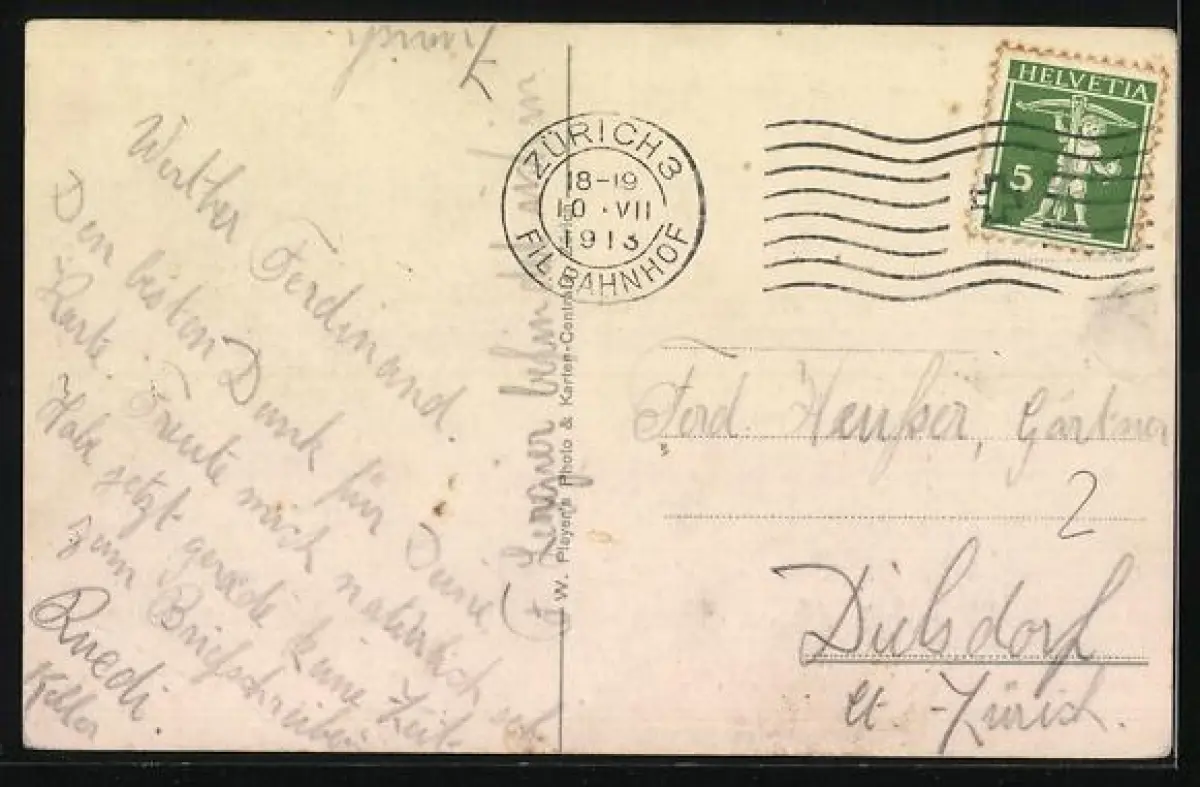 Werther Ferdinand.
Den besten Dank für Deine
Karte. Freute mich natürlich sch
Habe jetzt gerade keine Zeit
zum Briefschreiben
Ruedi.
Keller
ZÜRICH 3
18-19
10.VII
1913
FIL. BAHNHOF
HELVETIA
5
W. Player's Photo & Karten-Central
Ferd. Heußer, Gärtner
2
Dielsdorf
Zürich.